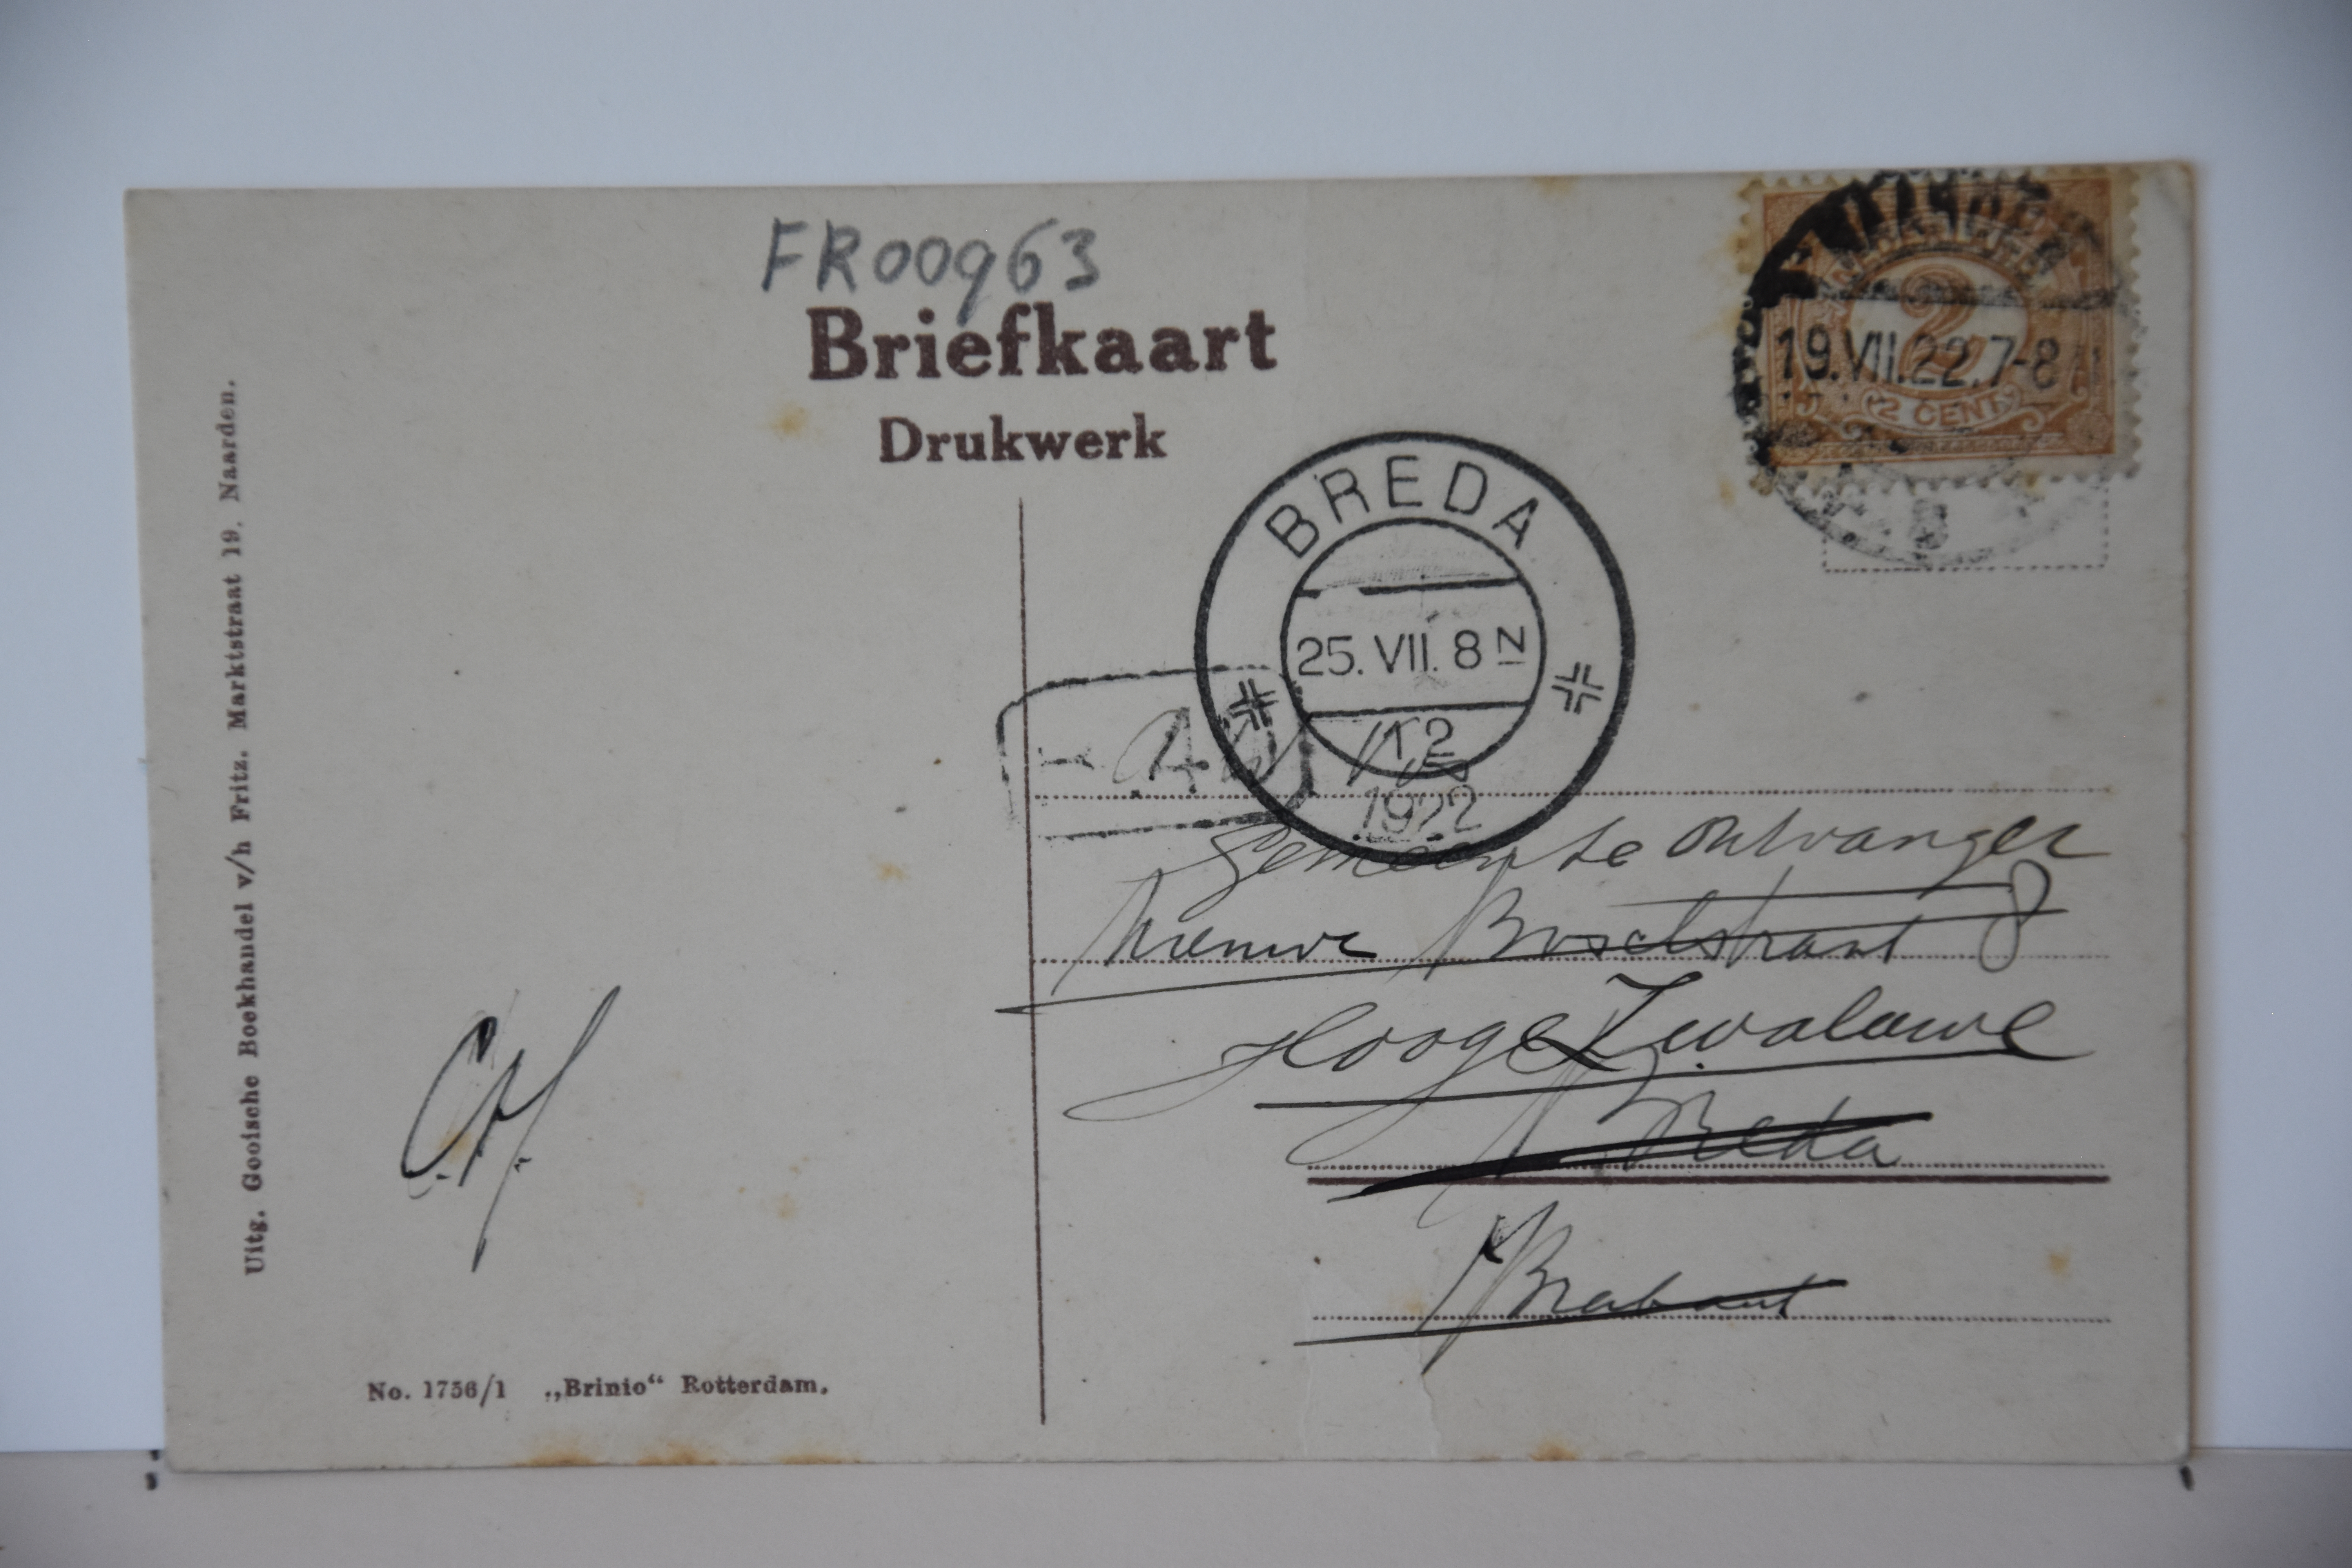 FR00963
Briefkaart
Drukwerk
2
19.VII.22.7-8
2 CENT
BREDA
25. VII. 8 N
1922
Gemeente Ontvanger
Nieuwe Boschstraat 8
Hooge Zwaluwe
Breda
N Brabant
Uitg. Gooische Boekhandel v/h Fritz. Marktstraat 19. Naarden.
No. 1756/1 „Brinio“ Rotterdam.